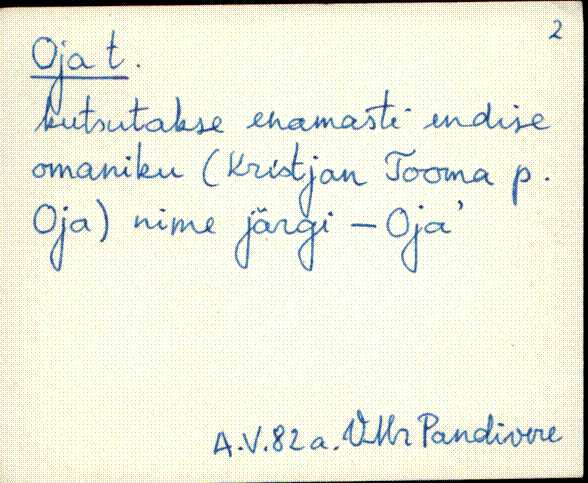 2
Oja t.
kutsutakse enamasti endise
omaniku (Kristjan Tooma p.
Oja) nime järgi – Oja'
A.V.82 a. VMr Pandivere